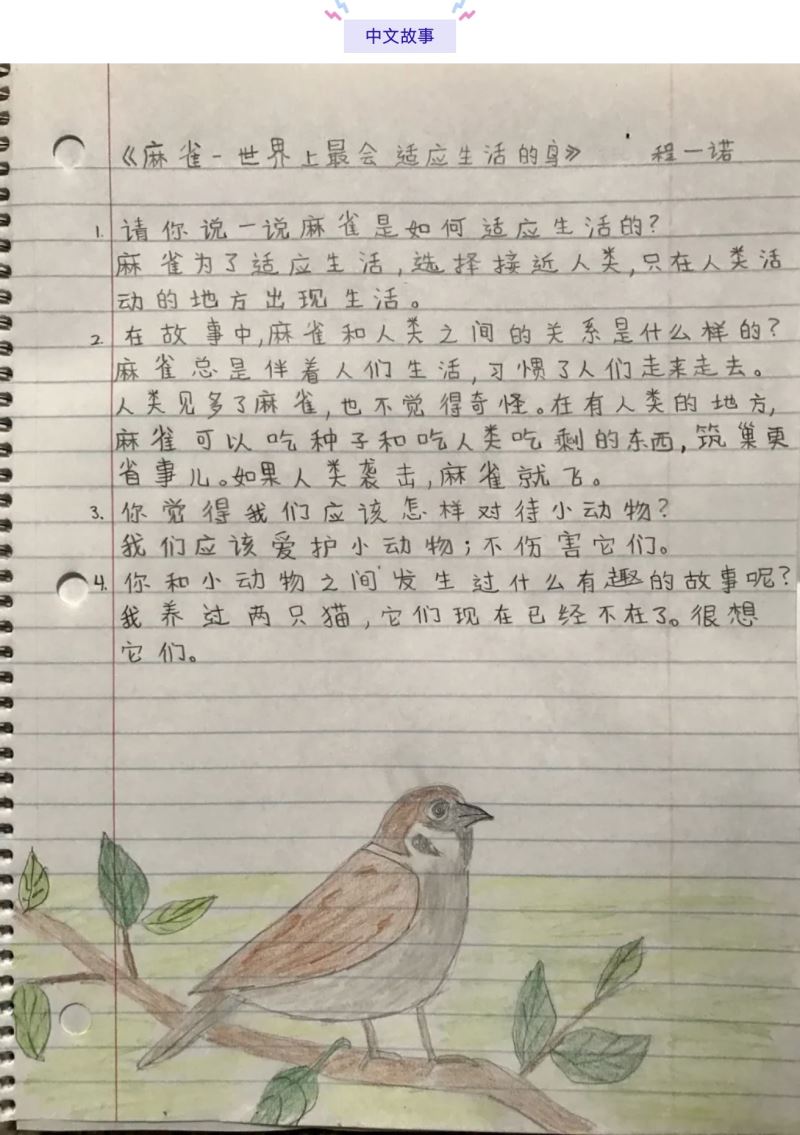 中文故事
《麻雀-世界上最会适应生活的鸟》 程一诺
1. 请你说一说麻雀是如何适应生活的?
麻雀为了适应生活,选择接近人类,只在人类活
动的地方出现生活。
2. 在故事中,麻雀和人类之间的关系是什么样的?
麻雀总是伴着人们生活,习惯了人们走来走去。
人类见多了麻雀,也不觉得奇怪。在有人类的地方,
麻雀可以吃种子和吃人类吃剩的东西,筑巢更
省事儿。如果人类袭击,麻雀就飞。
3. 你觉得我们应该怎样对待小动物?
我们应该爱护小动物;不伤害它们。
4. 你和小动物之间发生过什么有趣的故事呢?
我养过两只猫,它们现在已经不在了。很想
它们。